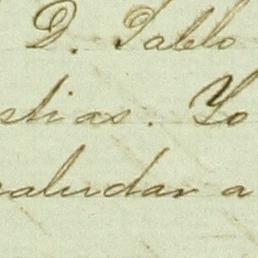 D. Pablo
stias. Yo
saludar a